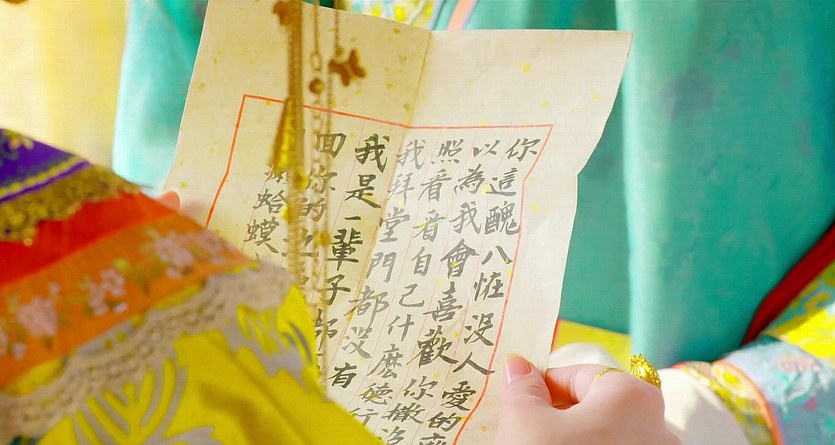 你這醜八恠沒人愛的
以為我會喜歡你撒
照看看自己什麼德行
我拜堂門都沒有
我是一輩子都
回你的
蛤蟆